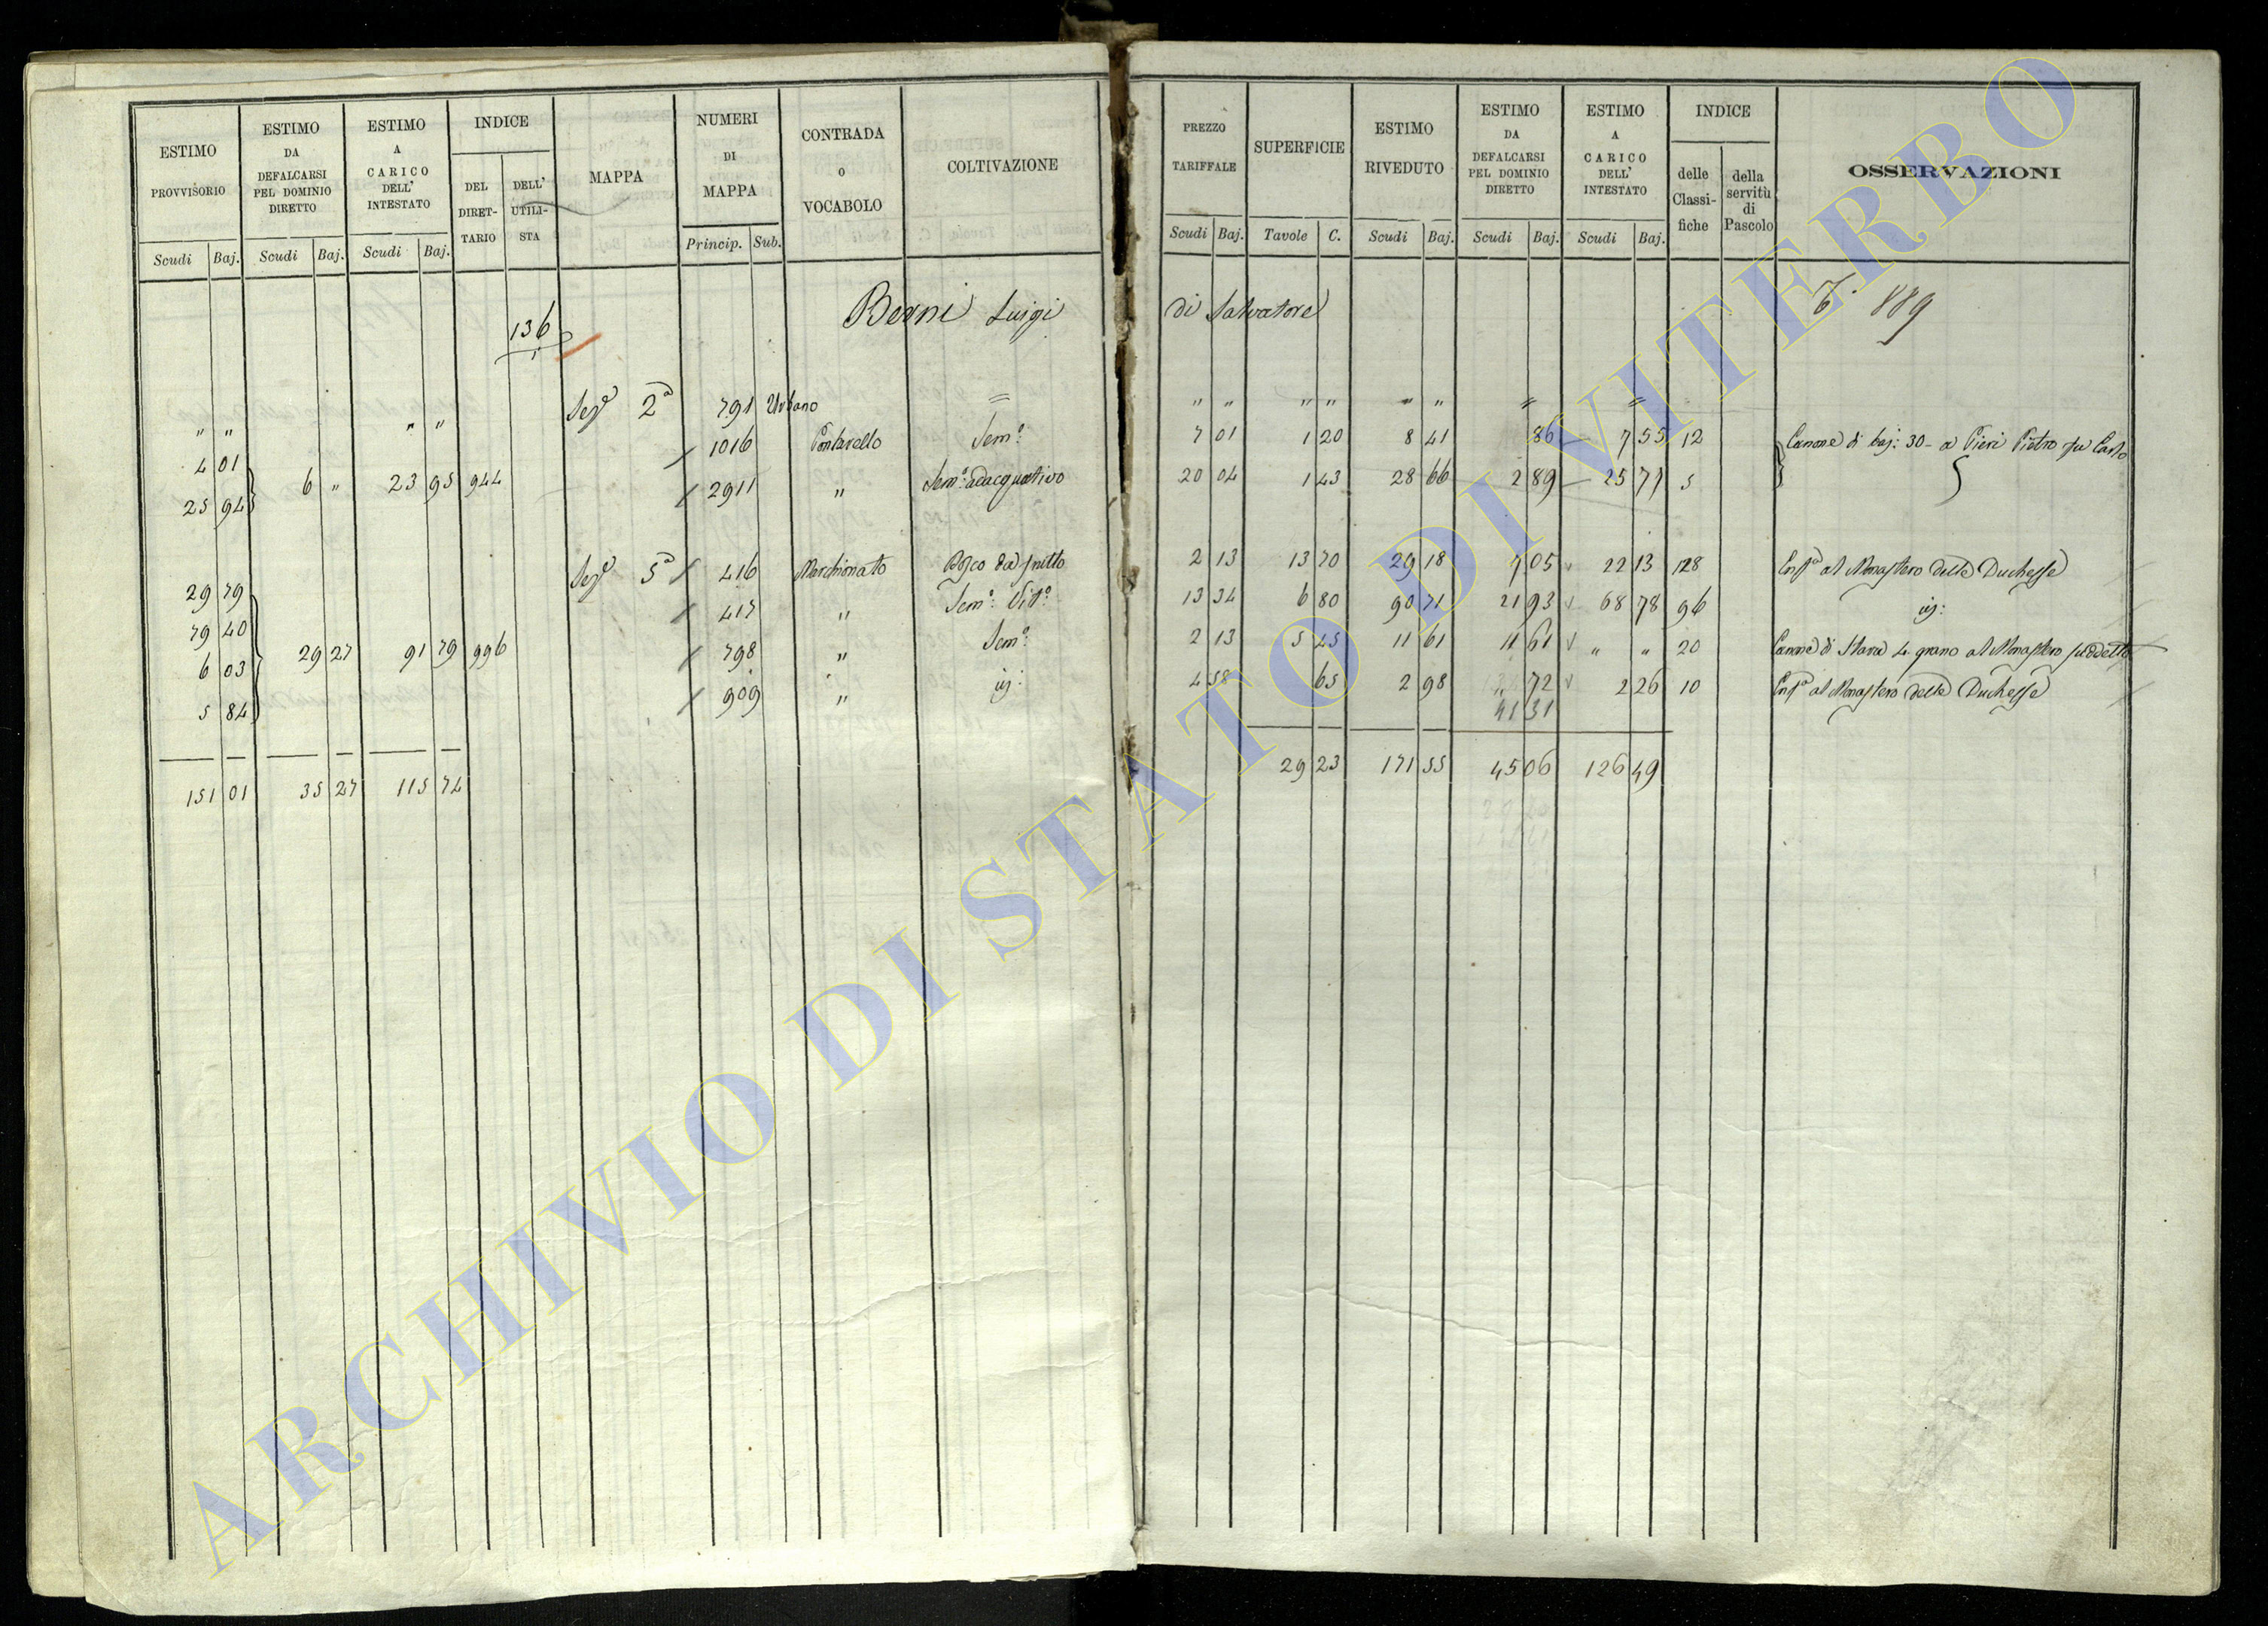 ESTIMO PROVVISORIO Scudi Baj.
ESTIMO DA DEFALCARSI PEL DOMINIO DIRETTO Scudi Baj.
ESTIMO A CARICO DELL' INTESTATO Scudi Baj.
INDICE DEL DIRET-TARIO DELL' UTILI-STA
MAPPA
NUMERI DI MAPPA Princip. Sub.
CONTRADA O VOCABOLO
COLTIVAZIONE
PREZZO TARIFFALE Scudi Baj.
SUPERFICIE Tavole C.
ESTIMO RIVEDUTO Scudi Baj.
ESTIMO DA DEFALCARSI PEL DOMINIO DIRETTO Scudi Baj.
ESTIMO A CARICO DELL' INTESTATO Scudi Baj.
INDICE delle Classi-fiche della servitù di Pascolo
OSSERVAZIONI
136 Berni Luigi di Salvatore 889
" " " " Sez.e 2a 791 Urbano = " " " " " " = =
4 01 1016 Pontarello Sem.o 7 01 1 20 8 41 86 7 55 12 Canone di baj: 30 - a Pieri Pietro fu Carlo
25 94 6 " 23 95 944 2911 " Sem.o adacquativo 20 04 1 43 28 66 2 89 25 77 5
29 79 Sez.e 5a 416 Marchionato Bosco da frutto 2 13 13 70 29 18 7 05 22 13 128 Enf.a al Monastero delle Duchesse
79 40 417 " Sem.o Vit.o 13 34 6 80 90 71 21 93 68 78 96
6 03 29 27 91 79 996 798 " Sem.o 2 13 5 45 11 61 11 61 " " 20 Canone di Stara 4 grano al Monastero suddetto
5 84 909 " 4 58 65 2 98 " 72 2 26 10 Enf.a al Monastero delle Duchesse
151 01 35 27 115 74 29 23 171 55 45 06 126 49
ARCHIVIO DI STATO DI VITERBO